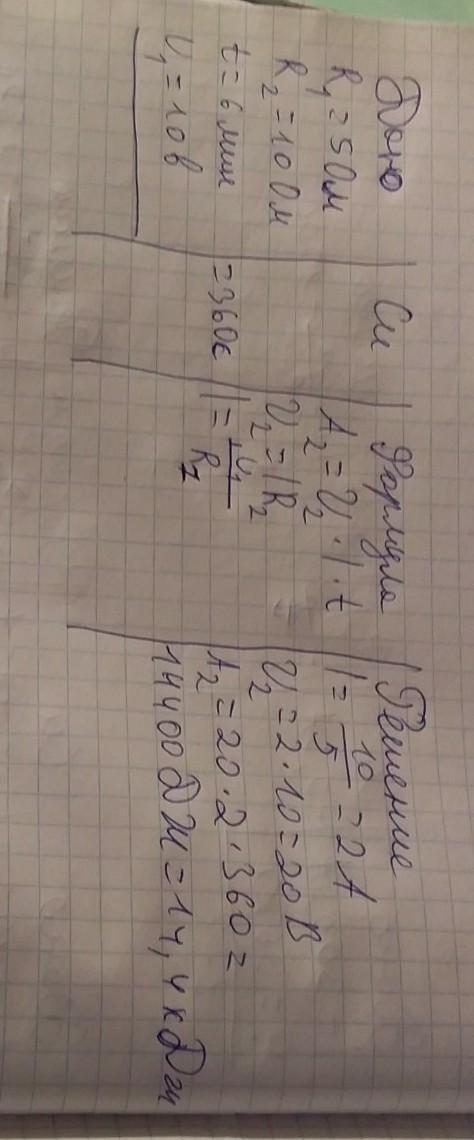 Дано
R₁ = 5 Ом
R₂ = 10 Ом
t = 6 мин
U₁ = 10 В
Си
= 360 с
Формула
A₂ = U₂ · I · t
U₂ = I R₂
I = U₁/R₁
Решение
I = 10/5 = 2 А
U₂ = 2 · 10 = 20 В
A₂ = 20 · 2 · 360 =
14400 Дж = 14,4 кДж